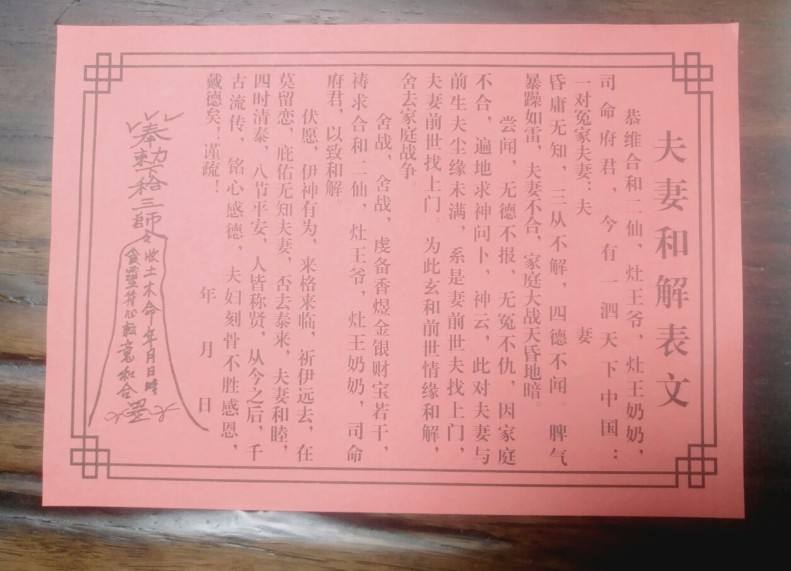 夫妻和解表文
恭维合和二仙，灶王爷，灶王奶奶，
司命府君，今有一泗天下中国：
一对冤家夫妻：夫 妻
昏庸无知，三从不解，四德不闻 脾气
暴躁如雷，夫妻不合，家庭大战天昏地暗。
尝闻，无德不报，无冤不仇，因家庭
不合，遍地求神问卜，神云，此对夫妻与
前生夫尘缘未满，系是妻前世夫找上门，
夫妻前世找上门 为此玄和前世情缘和解，
舍去家庭战争
舍战，舍战，虔备香煜金银财宝若干，
祷求合和二仙，灶王爷，灶王奶奶，司命
府君，以致和解
伏愿，伊神有为，来格来临，祈伊远去，在
莫留恋，庇佑无知夫妻，否去泰来，夫妻和睦，
四时清泰，八节平安，人皆称贤，从今之后，千
古流传，铭心感德，夫妇刻骨不胜感恩，
戴德矣！谨疏！
年 月 日
奉勅 三師
收土木命 年月日時
和合